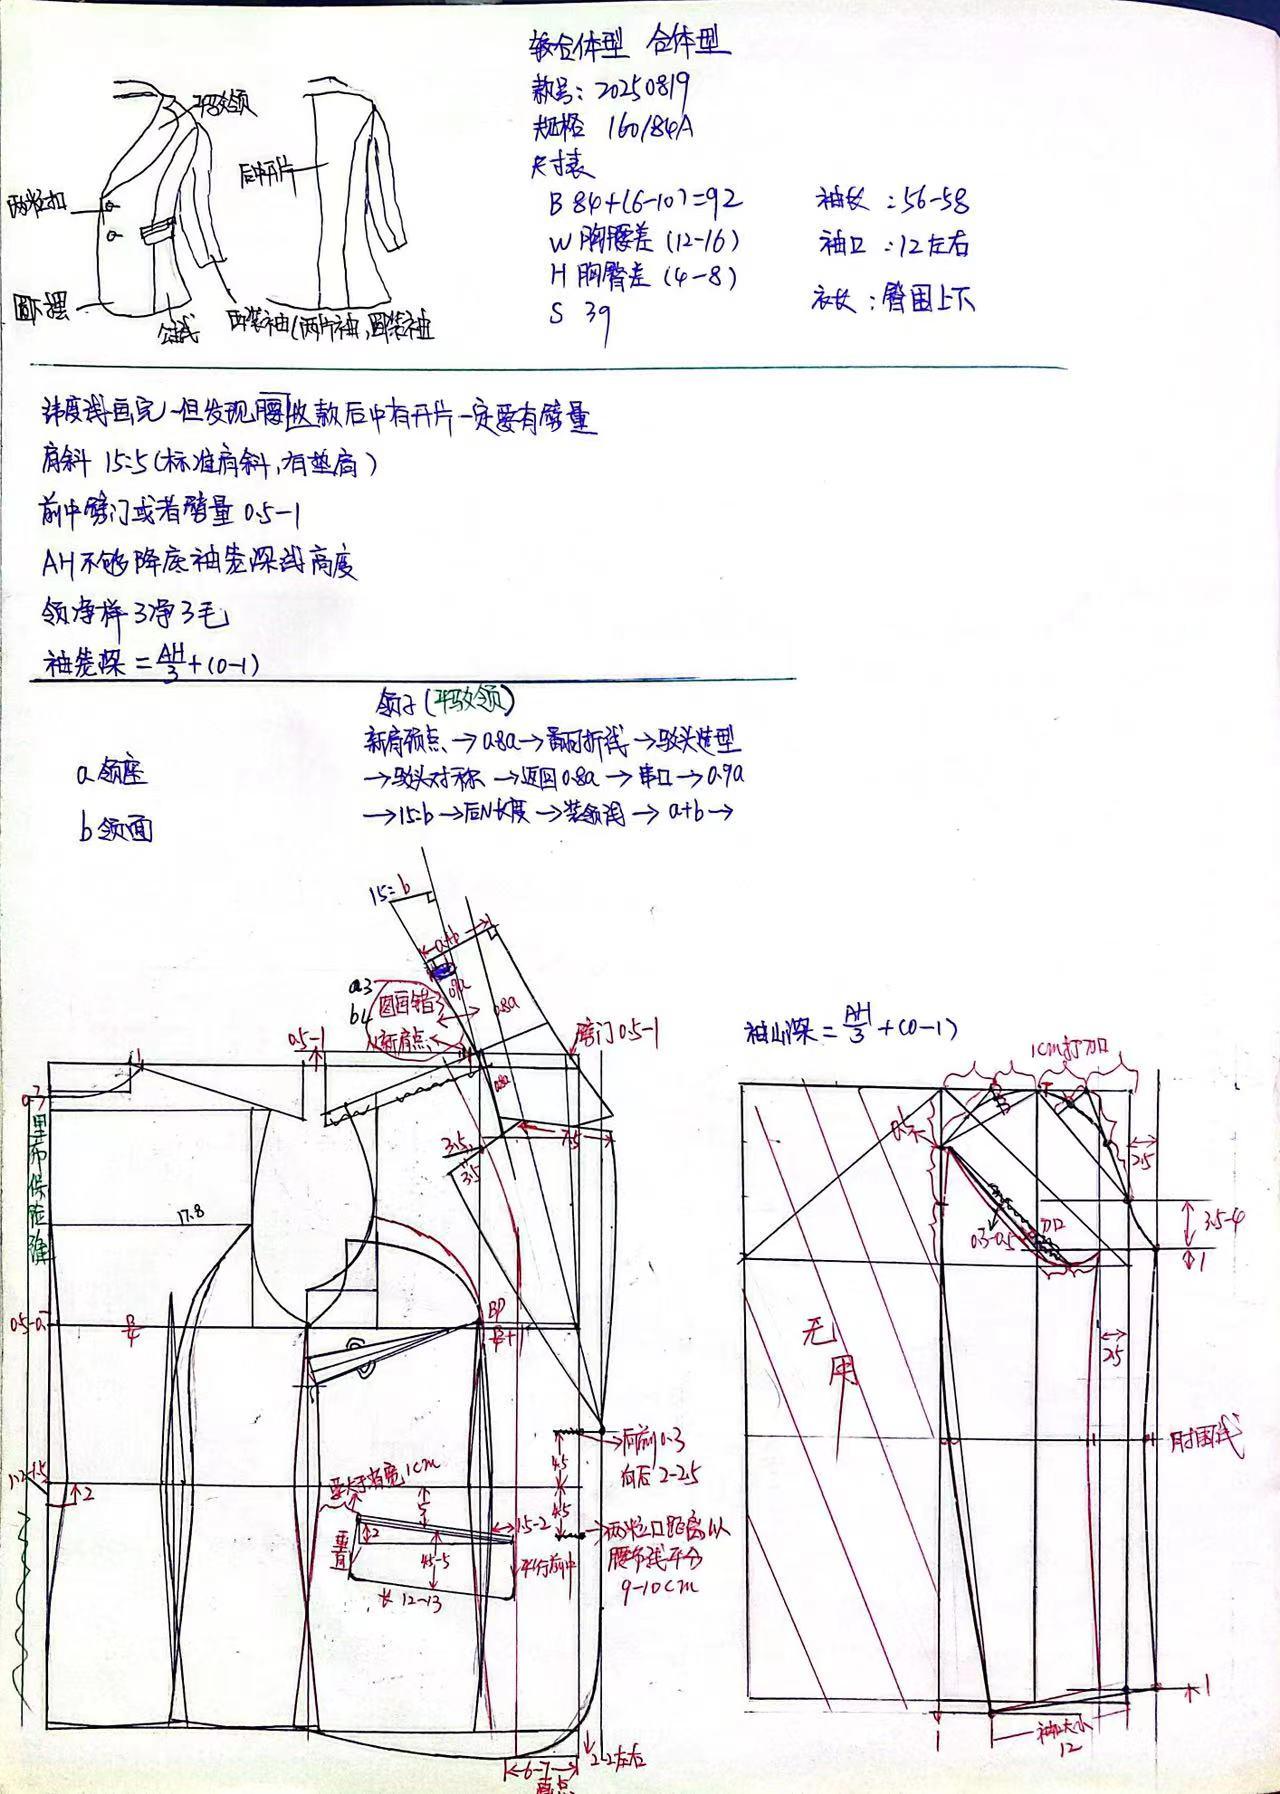 较合体型 合体型
款号: 20250819
规格 160/84A
尺寸表
B 84+(6-10)=92
W 胸腰差 (12-16)
H 胸臀差 (4-8)
S 39
袖长 : 56-58
袖口 : 12左右
衣长 : 臀围上下
平驳领
两粒扣
圆下摆
公主线
后中开片
西装袖(两片袖,圆装袖
纬度线画完,但发现腰收款后中有开片一定要有劈量
肩斜 15:5 (标准肩斜,有垫肩)
前中劈门或者劈量 0.5-1
AH不够降底袖笼深线高度
领净样 3净3毛
袖笼深 = AH/3 + (0-1)
领子(平驳领)
新肩颈点 → 0.8a → 翻折线 → 驳头造型
→ 驳头对称 → 返回0.8a → 串口 → 0.9a
→ 15:b → 后N长度 → 装领线 → a+b →
a 领座
b 领面
15:b
a+b
a3
b4
图画错
新肩点
0.9a
0.8a
0.8a
0.5-1
劈门 0.5-1
0.7
里布保险缝
3.5
3.5
7.5
17.8
0.5-a
B/4
BP
B/4+1
向前0.3
向后2-2.5
4.5
4.5
两粒口距离以
腰节线平分
9-10cm
1.2-1.5
2
要大于省宽1cm
5
1.5-2
2
垂直
4.5-5
平行前中
长 12-13
2-2左右
6-7
直点
袖山深 = AH/3 + (0-1)
1cm打刀口
2.5
3.5-4
1
0.3-0.5
刀口
2.5
无用
肘围线
1
1
袖口大小
12